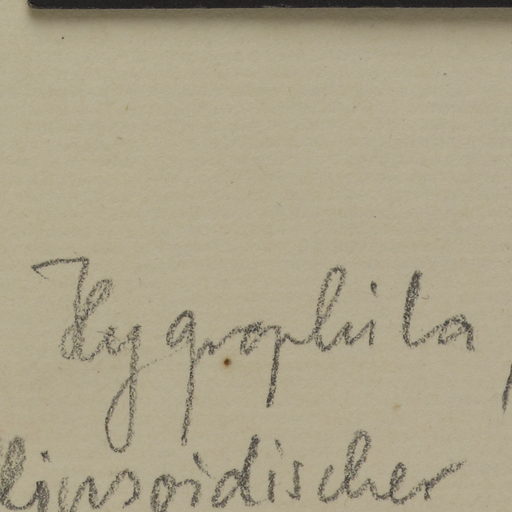 Hygrophila
lipsoidischer